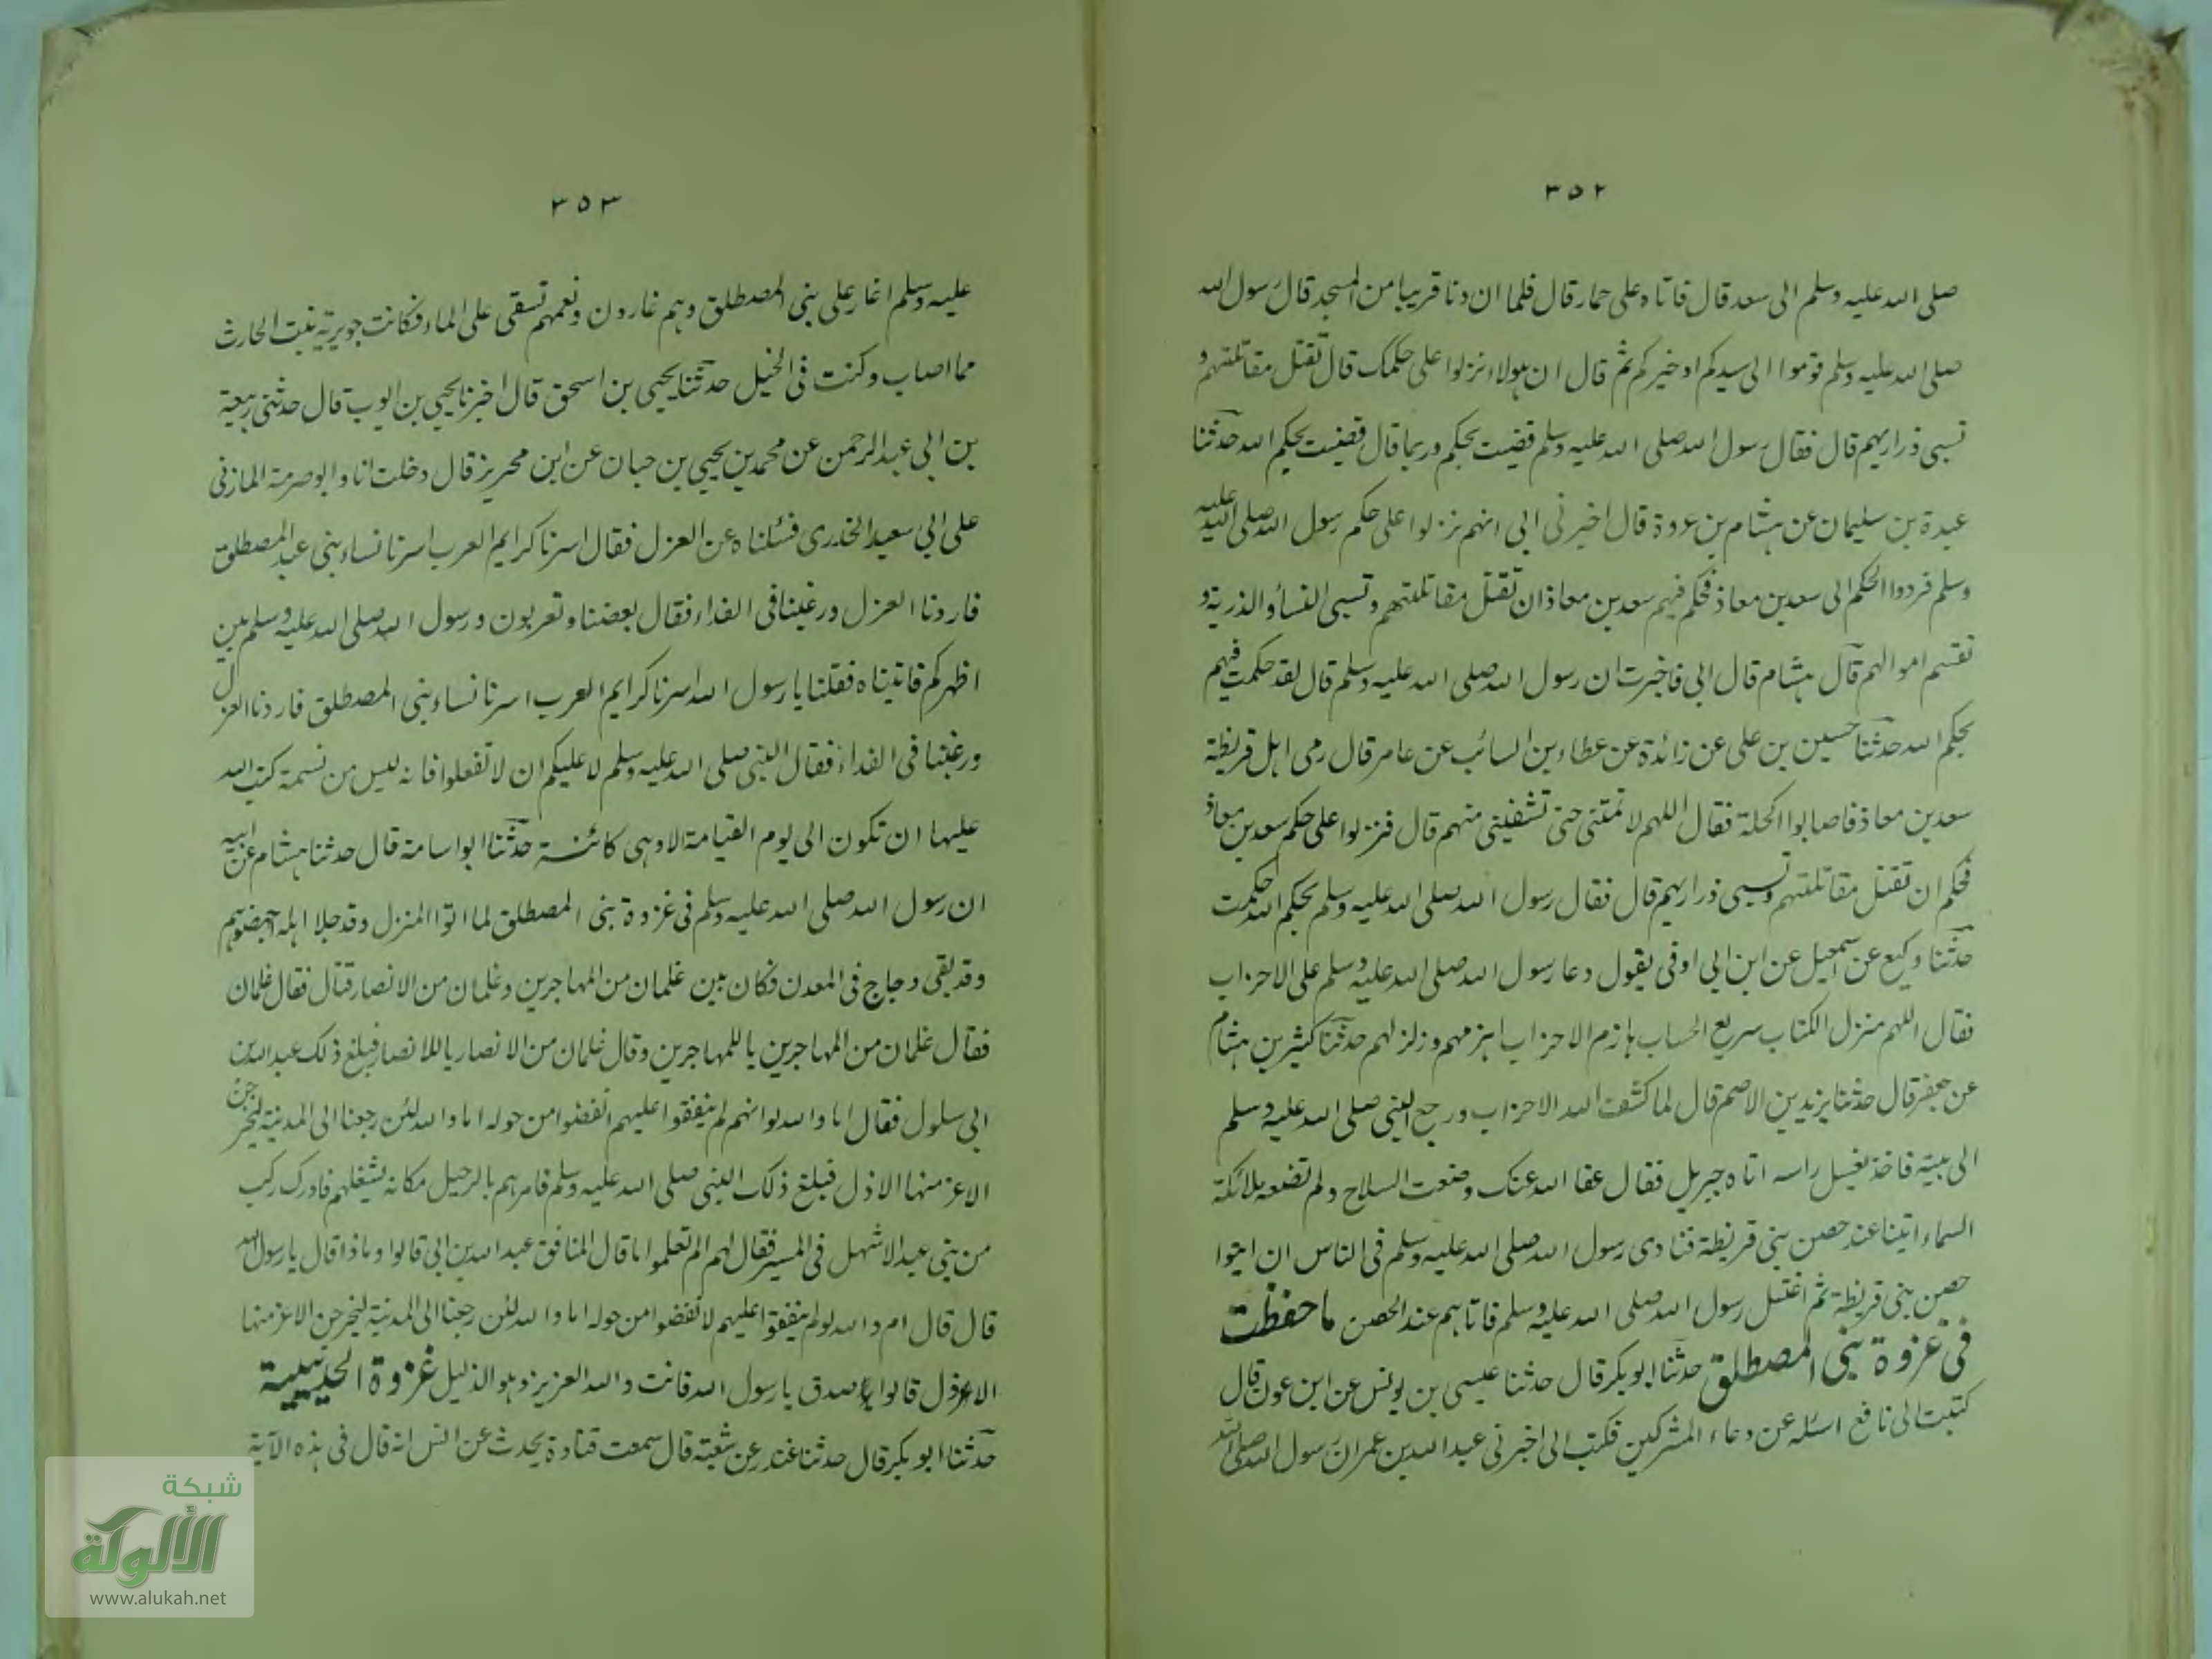 ٣٥٢
صلى الله عليه وسلم الى سعد قال فاتاه على حمار قال فلما ان دنا قريبا من المسجد قال رسول الله
صلى الله عليه وسلم قوموا الى سيدكم او خيركم ثم قال ان هولاء نزلوا على حكمك قال تقتل مقاتلتهم و
تسبى ذراريهم قال فقال رسول الله صلى الله عليه وسلم قضيت بحكم وربما قال قضيت بحكم الله حدثنا
عبدة بن سليمان عن هشام بن عروة قال اخبرنى ابى انهم نزلوا على حكم رسول الله صلى الله عليه
وسلم فردوا الحكم الى سعد بن معاذ فحكم فيهم سعد بن معاذ ان تقتل مقاتلتهم وتسبى النساء والذرية و
تقسم اموالهم قال هشام قال ابى فاخبرت ان رسول الله صلى الله عليه وسلم قال لقد حكمت فيهم
بحكم الله حدثنا حسين بن على عن زائدة عن عطاء بن السائب عن عامر قال رمى اهل قريظة
سعد بن معاذ فاصابوا اكحلة فقال اللهم لا تمتنى حتى تشفينى منهم قال فنزلوا على حكم سعد بن معاذ
فحكم ان تقتل مقاتلتهم وتسبى ذراريهم قال فقال رسول الله صلى الله عليه وسلم بحكم الله حكمت
حدثنا وكيع عن اسمعيل عن ابن ابى اوفى يقول دعا رسول الله صلى الله عليه وسلم على الاحزاب
فقال اللهم منزل الكتاب سريع الحساب هازم الاحزاب اهزمهم وزلزلهم حدثنا كثير بن هشام
عن جعفر قال حدثنا يزيد بن الاصم قال لما كشف الله الاحزاب ورجع النبى صلى الله عليه وسلم
الى بيته فاخذ يغسل راسه اتاه جبريل فقال عفا الله عنك وضعت السلاح ولم تضعه ملائكة
السماء ايتنا عند حصن بنى قريظة فنادى رسول الله صلى الله عليه وسلم فى الناس ان ايتوا
حصن بنى قريظة ثم اغتسل رسول الله صلى الله عليه وسلم فاتاهم عند الحصن ما حفظت
فى غزوة بنى المصطلق حدثنا ابو بكر قال حدثنا عيسى بن يونس عن ابن عون قال
كتبت الى نافع اسئله عن دعاء المشركين فكتب الى اخبرنى عبد الله بن عمر ان رسول الله صلى الله
٣٥٣
عليه وسلم اغار على بنى المصطلق وهم غارون ونعمهم تسقى على الماء فكانت جويرية بنت الحارث
مما اصاب وكنت فى الخيل حدثنا يحيى بن اسحق قال اخبرنا يحيى بن ايوب قال حدثنى ربيعة
بن ابى عبد الرحمن عن محمد بن يحيى بن حبان عن ابن محريز قال دخلت انا وابو صرمة المازنى
على ابى سعيد الخدرى فسئلناه عن العزل فقال اسرنا كرايم العرب اسرنا نساء بنى عبد المصطلق
فاردنا العزل ورغبنا فى الفداء فقال بعضنا وتعزبون ورسول الله صلى الله عليه وسلم بين
اظهركم فاتيناه فقلنا يا رسول الله اسرنا كرايم العرب اسرنا نساء بنى المصطلق فاردنا العزل
ورغبنا فى الفداء فقال النبى صلى الله عليه وسلم لا عليكم ان لا تفعلوا فانه ليس من نسمة كتب الله
عليها ان تكون الى يوم القيامة الا وهى كائنة حدثنا ابو اسامة قال حدثنا هشام عن ابيه
ان رسول الله صلى الله عليه وسلم فى غزوة بنى المصطلق لما اتوا المنزل وقد جلا اهله
وقد بقى دجاج فى المعدن فكان بين غلمان من المهاجرين وغلمان من الانصار قتال فقال غلمان
فقال غلمان من المهاجرين يا للمهاجرين وقال غلمان من الانصار يا للانصار فبلغ ذلك عبد الله بن
ابى سلول فقال اما والله لو انهم لم ينفقوا عليهم انفضوا من حوله اما والله لئن رجعنا الى المدينة ليخرجن
الاعز منها الاذل فبلغ ذلك النبى صلى الله عليه وسلم فامرهم بالرحيل مكانه يشغلهم فادرك ركب
من بنى عبد الاشهل فى المسير فقال لهم الم تعلموا ما قال المنافق عبد الله بن ابى قالوا وماذا قال يا رسول الله
قال قال ام والله لو لم ينفقوا عليهم لانفضوا من حوله اما والله لئن رجعنا الى المدينة ليخرجن الاعز منها
الاذل قالوا صدق يا رسول الله فانت والله العزيز وهو الذليل غزوة الحديبية
حدثنا ابو بكر قال حدثنا غندر عن شعبة قال سمعت قتادة يحدث عن انس انه قال فى هذه الآية
شبكة
الألوكة
www.alukah.net